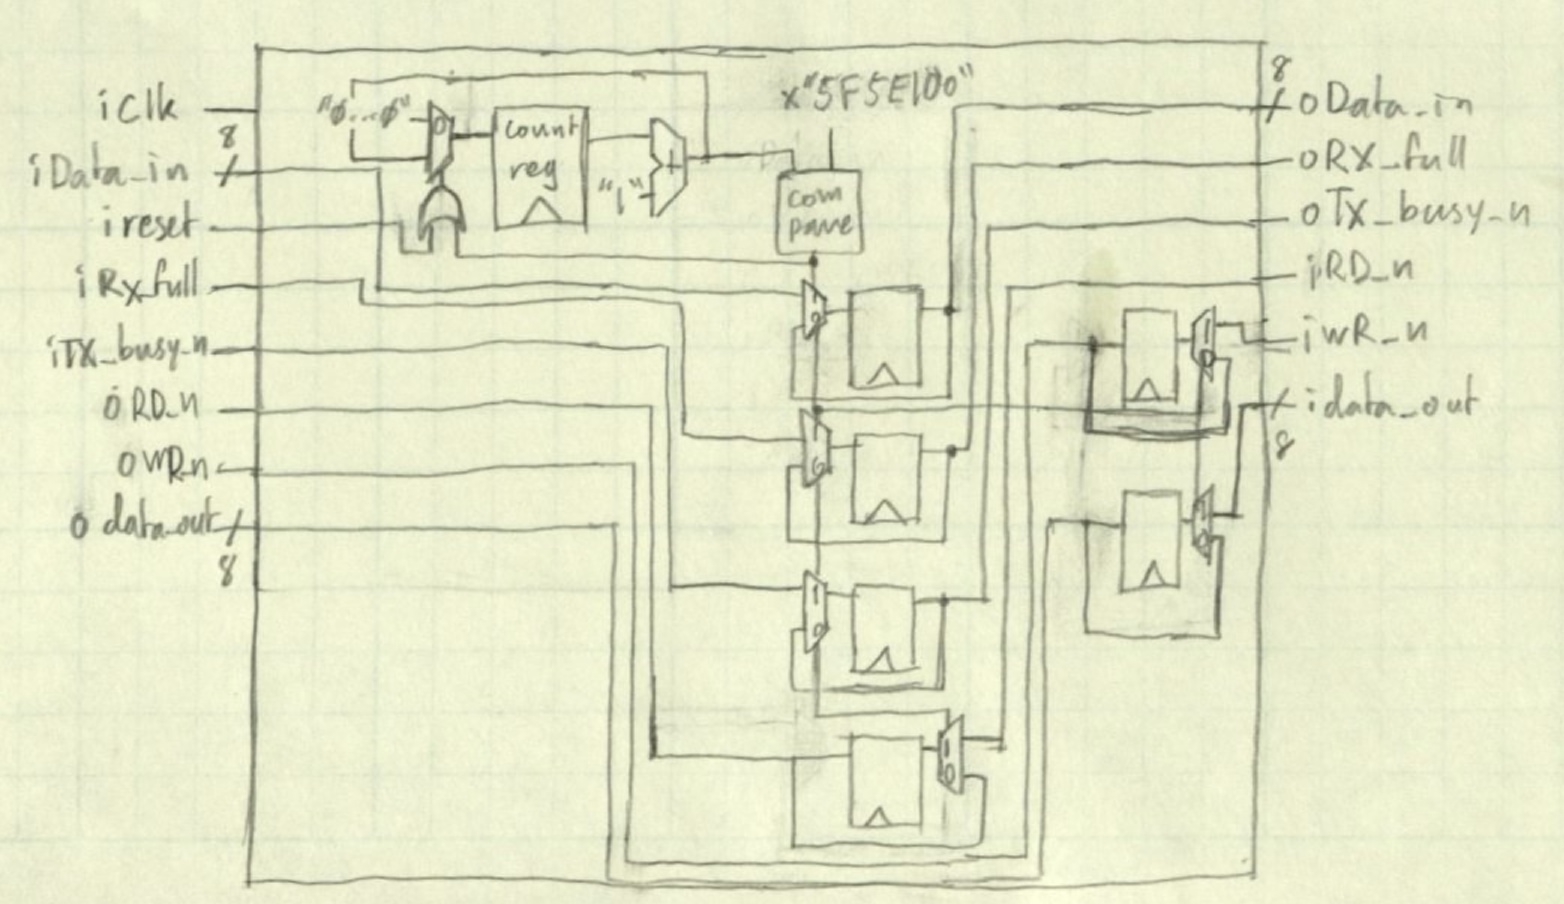 iClk
8
iData_in
ireset
iRx_full
iTX_busy_n
oRD_n
oWR_n
o data_out
8
"0...0"
0
count
reg
"1"
+
x"5F5E100"
com
pare
1
0
1
0
1
0
1
0
1
0
1
0
8
oData_in
oRX_full
oTx_busy_n
iRD_n
iwR_n
idata_out
8